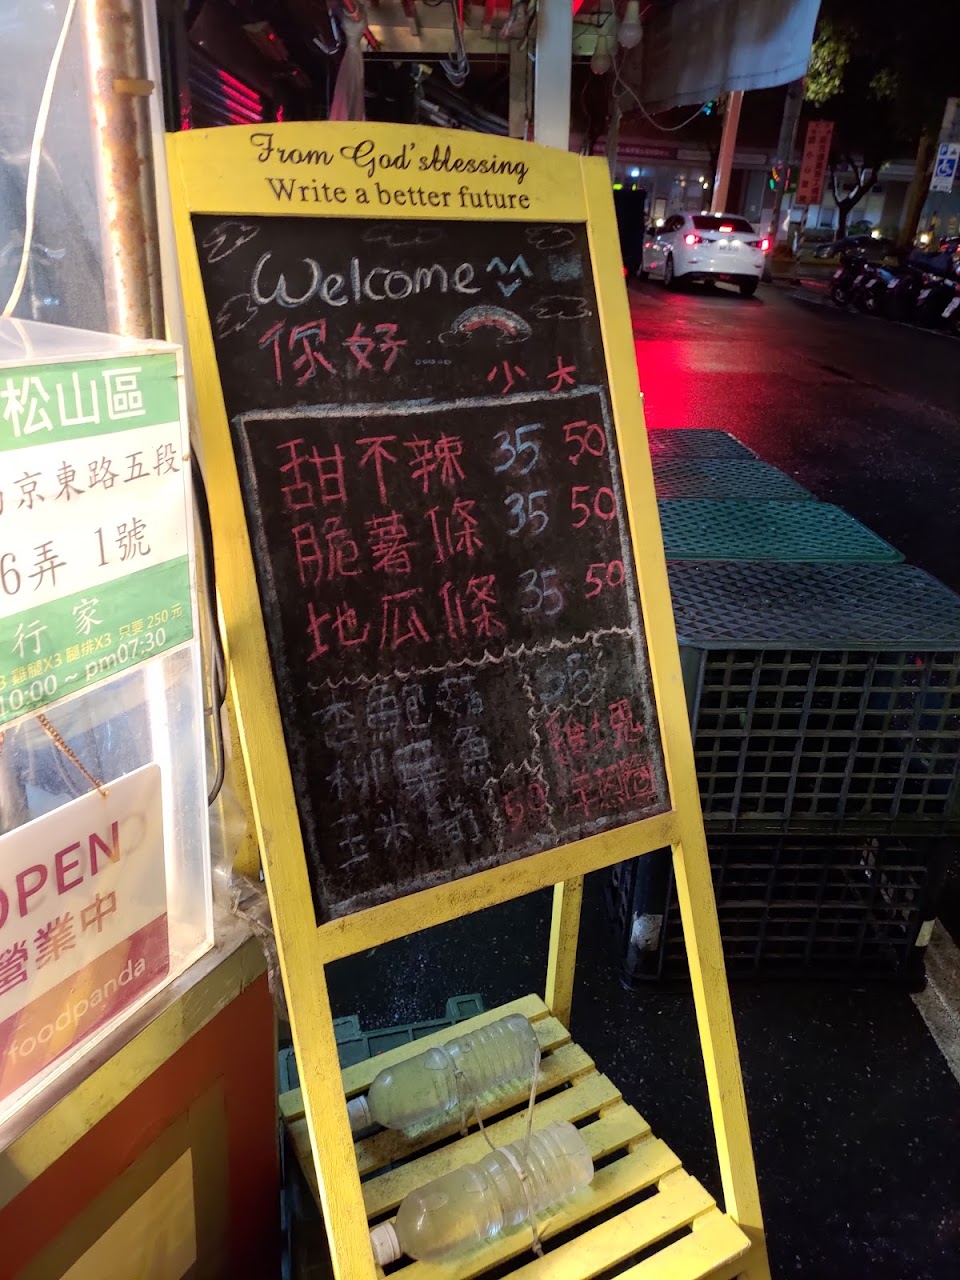 From God'sblessing
Write a better future
Welcome
你好
少 大
甜不辣 35 50
脆薯條 35 50
地瓜條 35 50
杏鮑菇
柳葉魚 雞塊
玉米 50 洋蔥圈
松山區
京東路五段
6弄 1號
行家
3 雞腿X3 腿排X3 只要 250 元
10:00 ~ pm07:30
OPEN
營業中
foodpanda